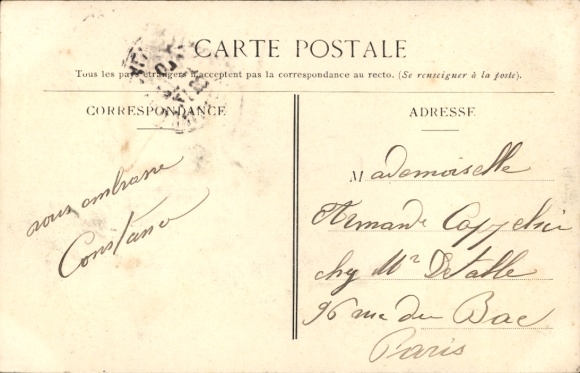 CARTE POSTALE
Tous les pays étrangers n'acceptent pas la correspondance au recto. (Se renseigner à la poste).
CORRESPONDANCE
vous embrasse
Constance
ADRESSE
Mademoiselle
Armande
chez Mr Detalle
96 rue du Bac
Paris